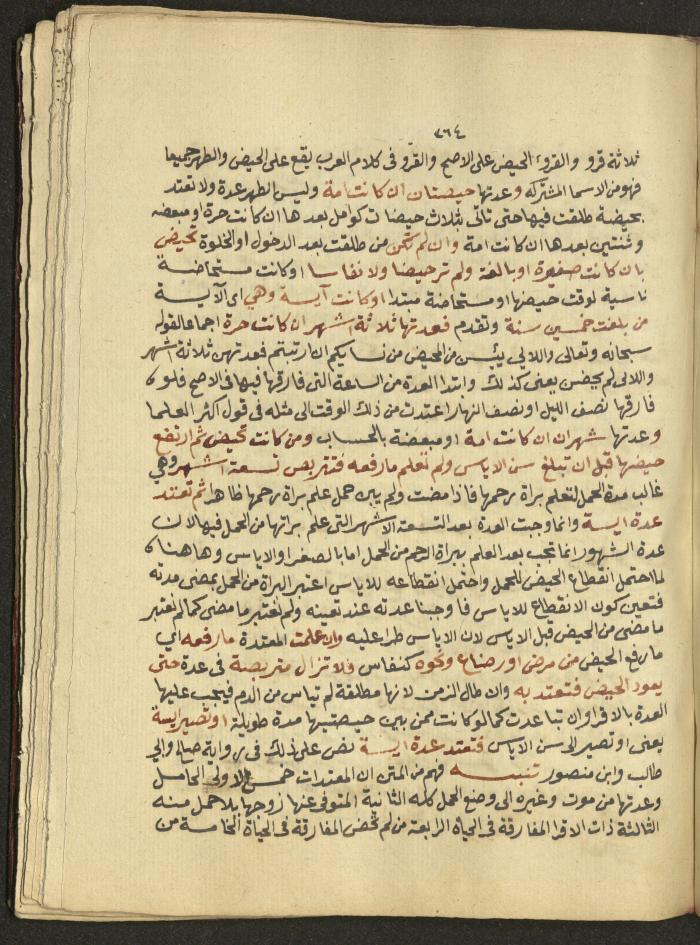 ٢٦٤
ثلاثة قرو والقروء الحيض على الاصح والقرو فى كلام العرب يقع على الحيض والطهر جميعا
فهو من الاسما المشتركه وعدتها حيضتان ان كانت امة وليس الطهر عدة ولا تعتد
بحيضة طلقت فيها حتى تاتى بثلاث حيضات كوامل بعدها ان كانت حرة او مبعضه
وثنتين بعدها ان كانت امة وان لم تكن من طلقت بعد الدخول او الخلوة تحيض
بان كانت صغيرة او بالغة ولم تر حيضا ولا نفاسا او كانت مستحاضة
ناسية لوقت حيضها او مستحاضة مبتدا او كانت آيسة وهي اى الآيسة
من بلغت خمسين سنة وتقدم فعدتها ثلاثة اشهر ان كانت حرة اجماعا لقوله
سبحانه وتعالى واللايي يئسن من المحيض من نسايكم ان ارتبتم فعدتهن ثلاثة اشهر
واللائى لم يحضن يعنى كذلك وابتدا العدة من الساعة التى فارقها فيها فى الاصح فلو
فارقها نصف الليل او نصف النهار اعتدت من ذلك الوقت الى مثله فى قول اكثر العلما
وعدتها شهران ان كانت امة او مبعضة بالحساب ومن كانت تحيض ثم ارتفع
حيضها قبل ان تبلغ سن الاياس ولم تعلم ما رفعه فتتربص تسعة اشهر وهي
غالب مدة الحمل لتعلم براة رحمها فاذا مضت ولم يبن حمل علم براة رحمها ظاهرا ثم تعتد
عدة ايسة وانما وجبت العدة بعد التسعة الاشهر التى علم براتها من الحمل فيها لان
عدة الشهور انما تجب بعد العلم ببراة الرحم من الحمل اما بالصغر او الاياس وهاهنا
لما احتمل انقطاع الحيض للحمل واحتمل انقطاعه للاياس اعتبر البراة من الحمل بمضى مدته
فتعين كون الانقطاع للاياس فاوجبنا عدته عند تعينه ولم نعتبر ما مضى كما لم نعتبر
ما مضى من الحيض قبل الاياس لان الاياس طرا عليه وان علمت المعتدة ما رفعه اي
ما رفع الحيض من مرض او رضاع ونحوه كنفاس فلا تزال متربصة فى عدة حتى
يعود الحيض فتعتد به وان طال الزمن لانها مطلقة لم تياس من الدم فيجب عليها
العدة بالاقرا وان تباعدت كما لو كانت ممن بين حيضتيها مدة طويلة او تصير ايسة
يعنى او تصير الى سن الاياس فتعتد عدة ايسة نص على ذلك فى رواية صالح وابي
طالب وابن منصور تنبيه فهم من المتن ان المعتدات خمس الاولى الحامل
وعدتها من موت وغيره الى وضع الحمل كله الثانية المتوفى عنها زوجها بلا حمل منه
الثالثة ذات الاقرا المفارقة فى الحياة الرابعة من لم تحض المفارقة فى الحياة الخامسة من